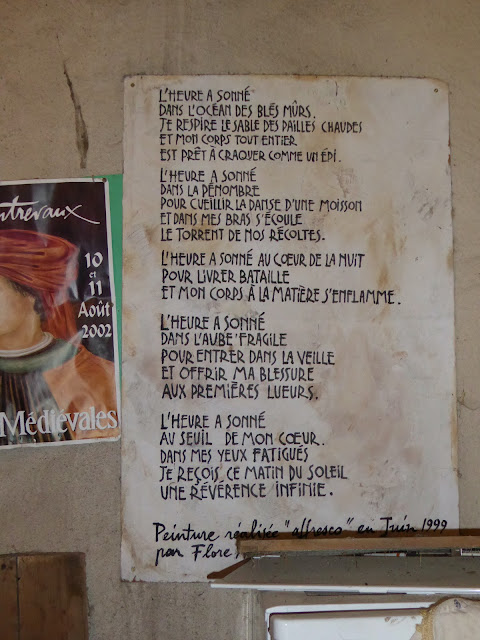 L'HEURE A SONNÉ
DANS L'OCÉAN DES BLÉS MÛRS.
JE RESPIRE LE SABLE DES PAILLES CHAUDES
ET MON CORPS TOUT ENTIER
EST PRÊT À CRAQUER COMME UN ÉPI.
L'HEURE A SONNÉ
DANS LA PÉNOMBRE
POUR CUEILLIR LA DANSE D'UNE MOISSON
ET DANS MES BRAS S'ÉCOULE
LE TORRENT DE NOS RÉCOLTES.
L'HEURE A SONNÉ AU CŒUR DE LA NUIT
POUR LIVRER BATAILLE
ET MON CORPS À LA MATIÈRE S'ENFLAMME.
L'HEURE A SONNÉ
DANS L'AUBE FRAGILE
POUR ENTRER DANS LA VEILLE
ET OFFRIR MA BLESSURE
AUX PREMIÈRES LUEURS.
L'HEURE A SONNÉ
AU SEUIL DE MON CŒUR.
DANS MES YEUX FATIGUÉS
JE REÇOIS CE MATIN DU SOLEIL
UNE RÉVÉRENCE INFINIE.
Peinture réalisée "affresco" en Juin 1999
par Flore)
ntrevaux
10
et
11
Août
2002
Médiévales